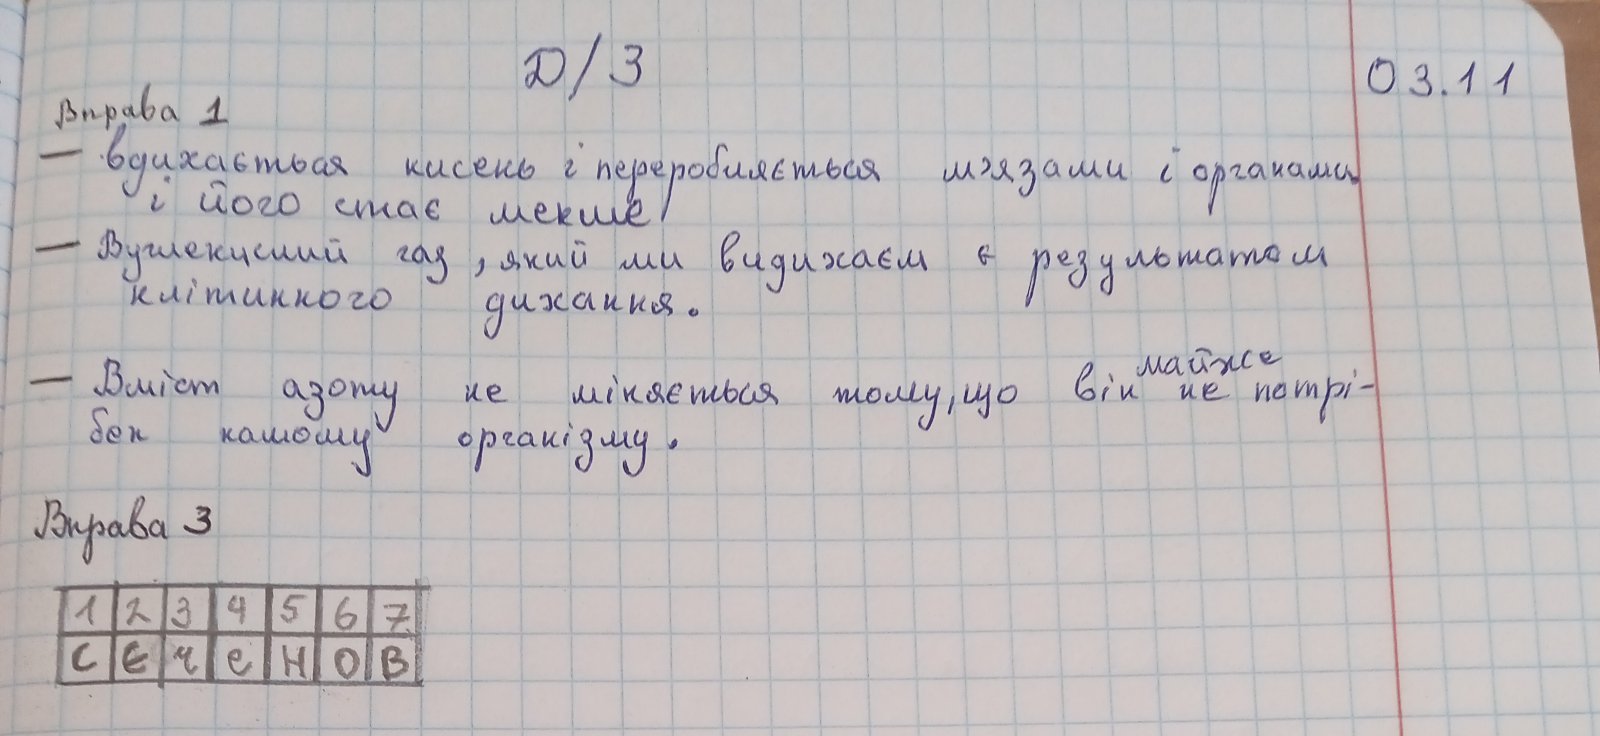 Д/З
03.11
Вправа 1
— вдихається кисень і переробляється м'язами і органами
і його стає менше
— Вуглекислий газ, який ми видихаєм є результатом
клітинного дихання.
майже
— Вміст азоту не міняється тому, що він не потрі-
бен нашому організму.
Вправа 3
1 2 3 4 5 6 7
С Є Ч Е Н О В